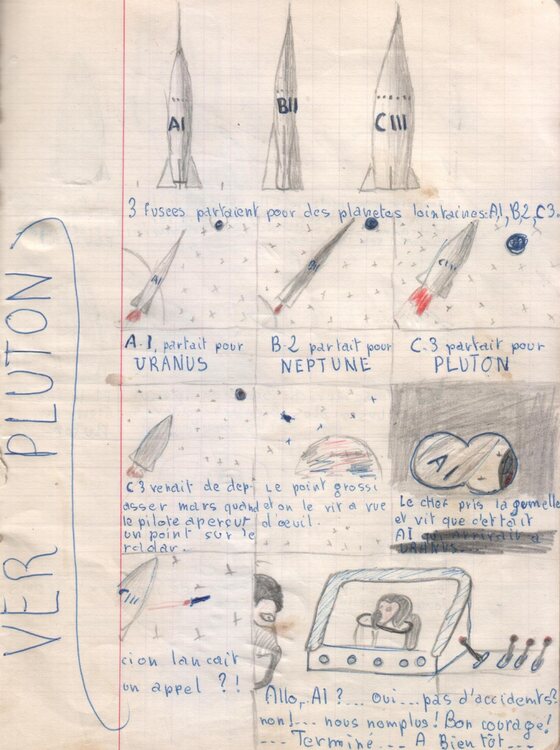 VER PLUTON
AI
BII
CIII
3 fusees partaient pour des planetes lointaines: A1, B2, C3.
AI
BII
CIII
A.1, partait pour
URANUS
B.2 partait pour
NEPTUNE
C.3 partait pour
PLUTON
C3 venait de dep
asser mars quand
le pilote aperçut
un point sur le
radar.
Le point grossi
et on le vit a vue
d'œuil.
AI
Le chef pris la gumelle
et vit que c'ettait
AI qui arrivait a
URANUS...
CIII
cion lancait
un appel ?!
Allo, AI ?... oui... pas d'accidents?
non!... nous nomplus! Bon courage!
.... Terminé... A Bientôt...